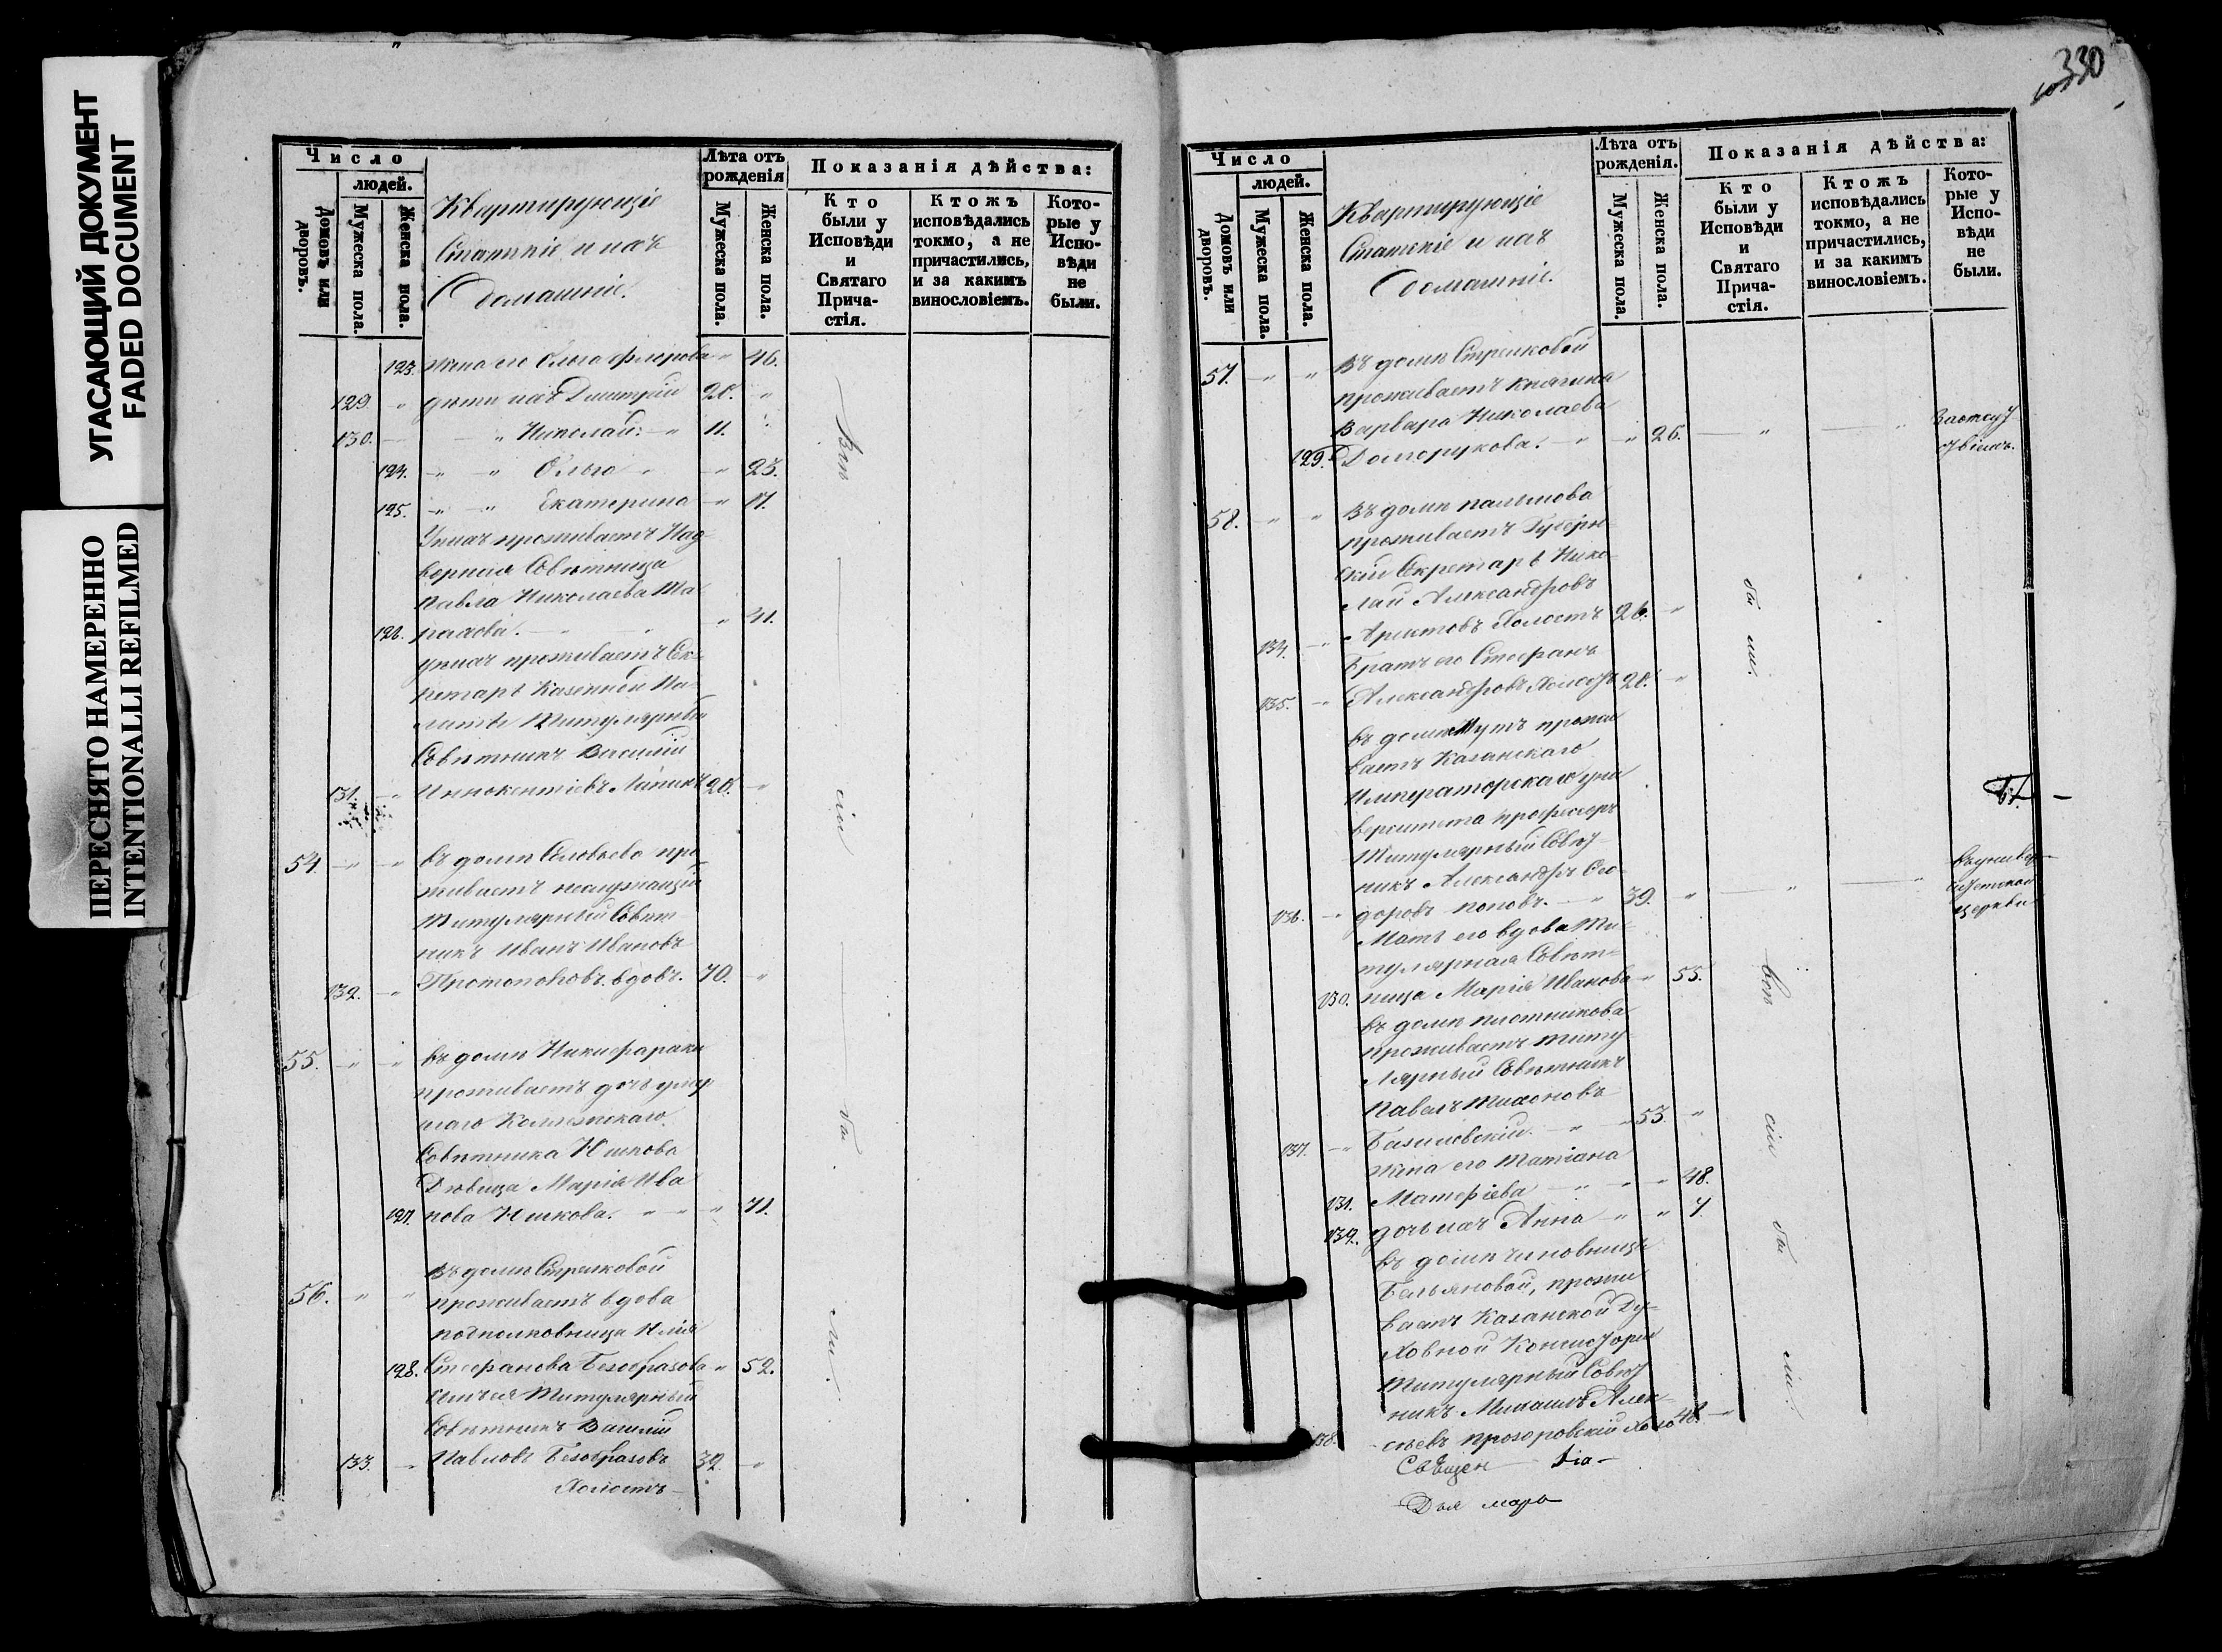 УГАСАЮЩИЙ ДОКУМЕНТ
FADED DOCUMENT
ПЕРЕСНЯТО НАМЕРЕННО
INTENTIONALLI REFILMED
Число
людей.
Домовъ или дворовъ.
Мужеска пола.
Женска пола.
Квартирующіе
Статскіе и ихъ
Домашніе.
Лѣта отъ рожденія
Мужеска пола.
Женска пола.
Показанія дѣйства:
Кто были у Исповѣди и Святаго Прича-стія.
Ктожъ исповѣдались токмо, а не причастились, и за какимъ винословіемъ.
Кото-рые у Испо-вѣди не были.
123. Жена его Ольга 46.
129 " дѣти ихъ Дмитрій 28. "
130. " Николай 11. "
124. " " Ольга " 23.
125. " " Екатерина " 17.
У нихъ проживаетъ Над
ворная Совѣтница
Павла Николаева
126. " 41.
у нихъ проживаетъ Сек-
ретарь Казенной Па-
латы Титулярный
Совѣтникъ Василій
131. " Иннокентіевъ 28. "
54. " " въ домѣ Соловьева про
живаетъ неслужащій
Титулярный Совѣт-
никъ Иванъ Ивановъ
132. " Протопоповъ вдовъ. 70. "
55. " " въ домѣ
проживаетъ дочь умер
шаго Коллежскаго
Совѣтника
Дѣвица Марія Ива
127. нова 71.
56. " " въ домѣ Стрелковой
проживаетъ вдова
подполковница Юлія
128. Стефанова Безобразова " 52.
Сынъ ея Титулярный
Совѣтникъ Василій
133. " Павловъ Безобразовъ 32 "
Холостъ
Всѣ
сіи
бы
ли.
330
Число
людей.
Домовъ или дворовъ.
Мужеска пола.
Женска пола.
Квартирующіе
Статскіе и ихъ
Домашніе.
Лѣта отъ рожденія.
Мужеска пола.
Женска пола.
Показанія дѣйства:
Кто были у Исповѣди и Святаго Прича-стія.
Ктожъ исповѣдались токмо, а не причастились, и за какимъ винословіемъ.
Кото-рые у Испо-вѣди не были.
57. " " Въ домѣ Стрелковой
проживаетъ Княгиня
Варвара Николаева
129. Долгорукова. " 26. " "
За отсут-
ствіемъ.
58. " " Въ домѣ
проживаетъ Губерн-
скій Секретарь Нико-
лай Александровъ
134. " Аристовъ Холостъ 26. "
Братъ его Стефанъ
135. " Александровъ Холостъ 28. "
въ домѣ прожи
ваетъ Казанскаго
Императорскаго Уни
верситета профессоръ
Титулярный Совѣт-
никъ Александръ Ѳео-
136. " доровъ Поповъ. 39. " " "
въ универ-
ситетской
церкви
Мать его вдова Ти-
тулярная Совѣт-
130. ница Марія Иванова " 55.
въ домѣ Плотникова
проживаетъ титу
лярный Совѣтникъ
Павелъ Тихоновъ
137. " 53. "
Жена его Татіана
131. Матѳіева " " 48.
132. дочь ихъ Анна " " 7.
въ домѣ чиновницы
прожи
ваетъ Казанской Ду-
ховной Консисторіи
Титулярный Совѣт
никъ Михаилъ Алек-
138. сѣевъ 48. "
бы
ли.
всѣ
сіи
бы
ли.
Священ